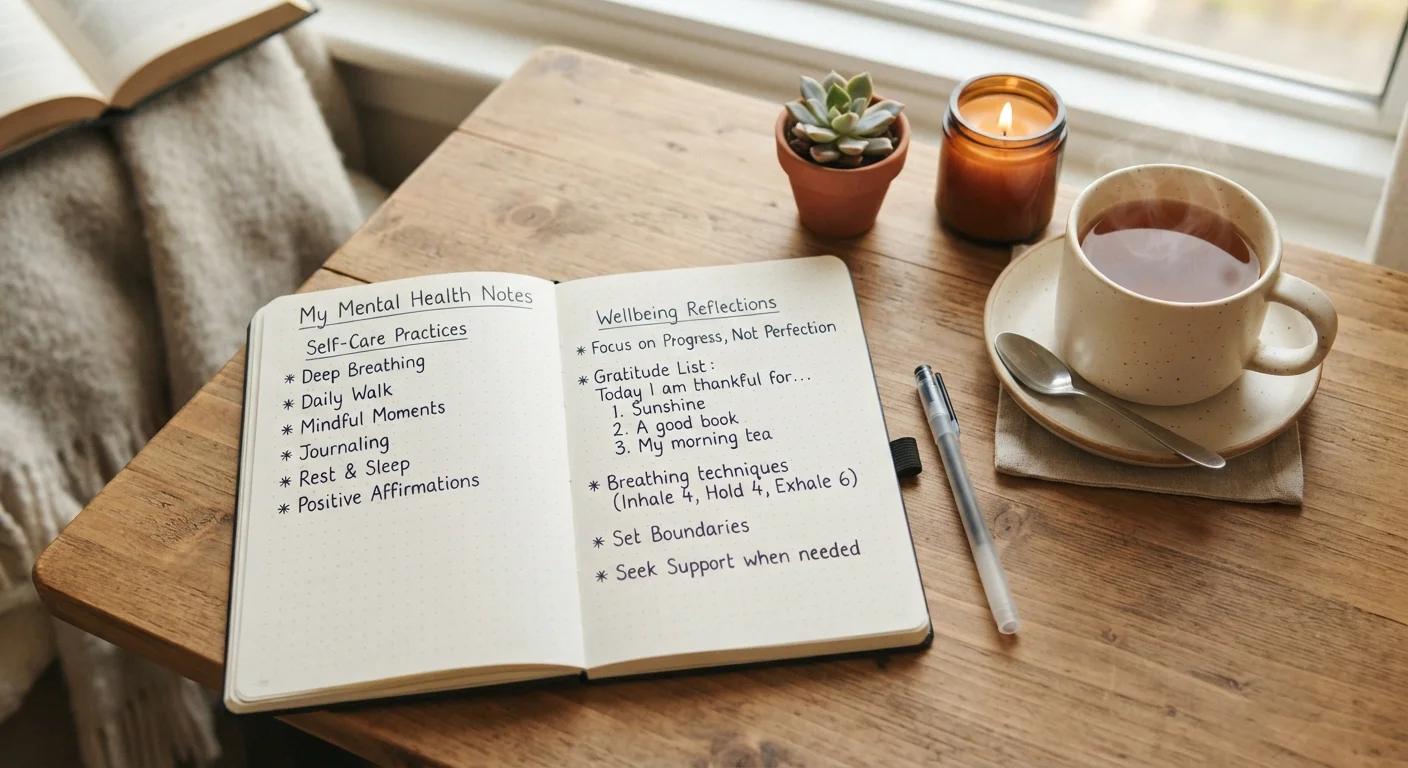 My Mental Health Notes
Self-Care Practices
* Deep Breathing
* Daily Walk
* Mindful Moments
* Journaling
* Rest & Sleep
* Positive Affirmations
Wellbeing Reflections
* Focus on Progress, Not Perfection
* Gratitude List:
Today I am thankful for...
1. Sunshine
2. A good book
3. My morning tea
* Breathing techniques
(Inhale 4, Hold 4, Exhale 6)
* Set Boundaries
* Seek Support when needed